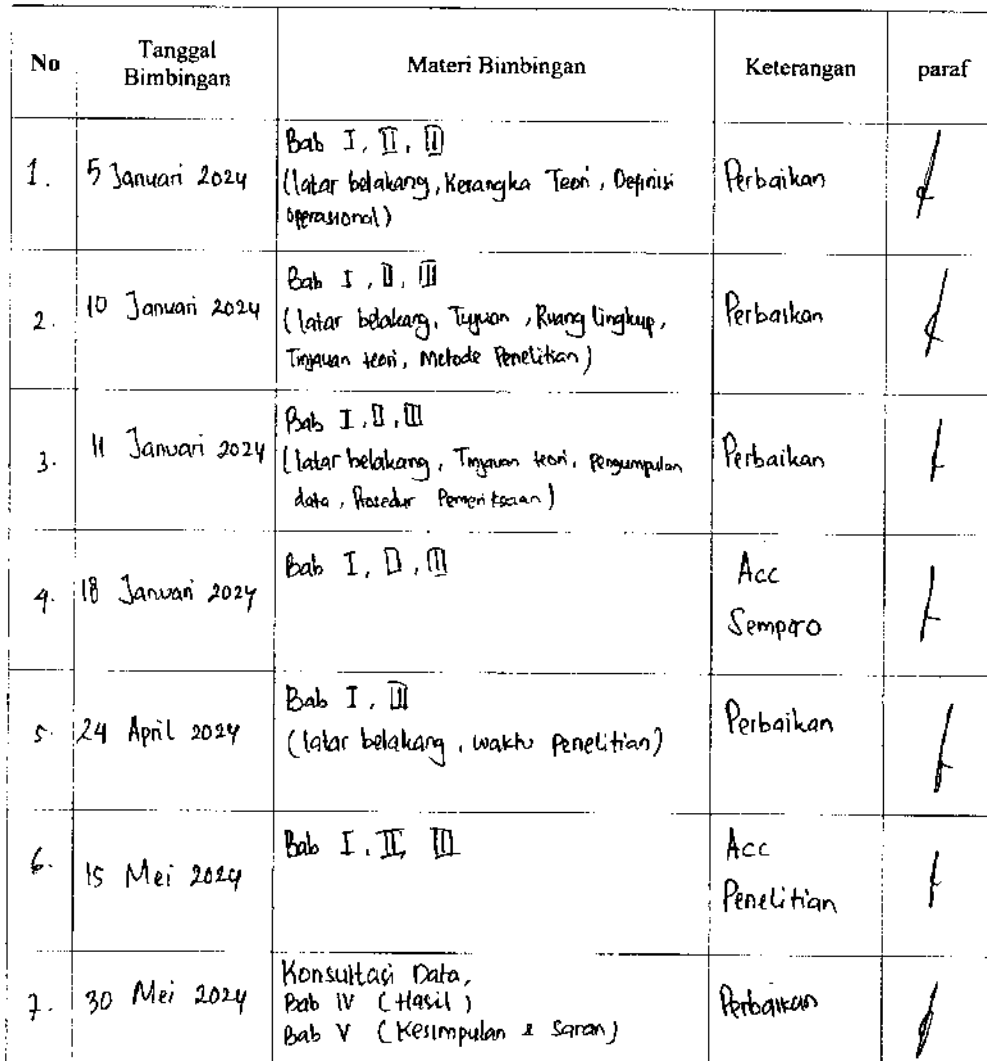 No Tanggal Bimbingan Materi Bimbingan Keterangan paraf
1. 5 Januari 2024 Bab I, II, III Perbaikan
(latar belakang, Kerangka Teori, Definisi
operasional)
2. 10 Januari 2024 Bab I, II, III Perbaikan
(latar belakang, Tujuan, Ruang lingkup,
Tinjauan teori, Metode Penelitian)
3. 11 Januari 2024 Bab I, II, III Perbaikan
(latar belakang, Tinjauan teori, Pengumpulan
data, Prosedur Pemeriksaan)
4. 18 Januari 2024 Bab I, II, III Acc
Sempro
5. 24 April 2024 Bab I, III Perbaikan
(latar belakang, waktu Penelitian)
6. 15 Mei 2024 Bab I, II, III Acc
Penelitian
7. 30 Mei 2024 Konsultasi Data, Perbaikan
Bab IV (Hasil)
Bab V (Kesimpulan & Saran)